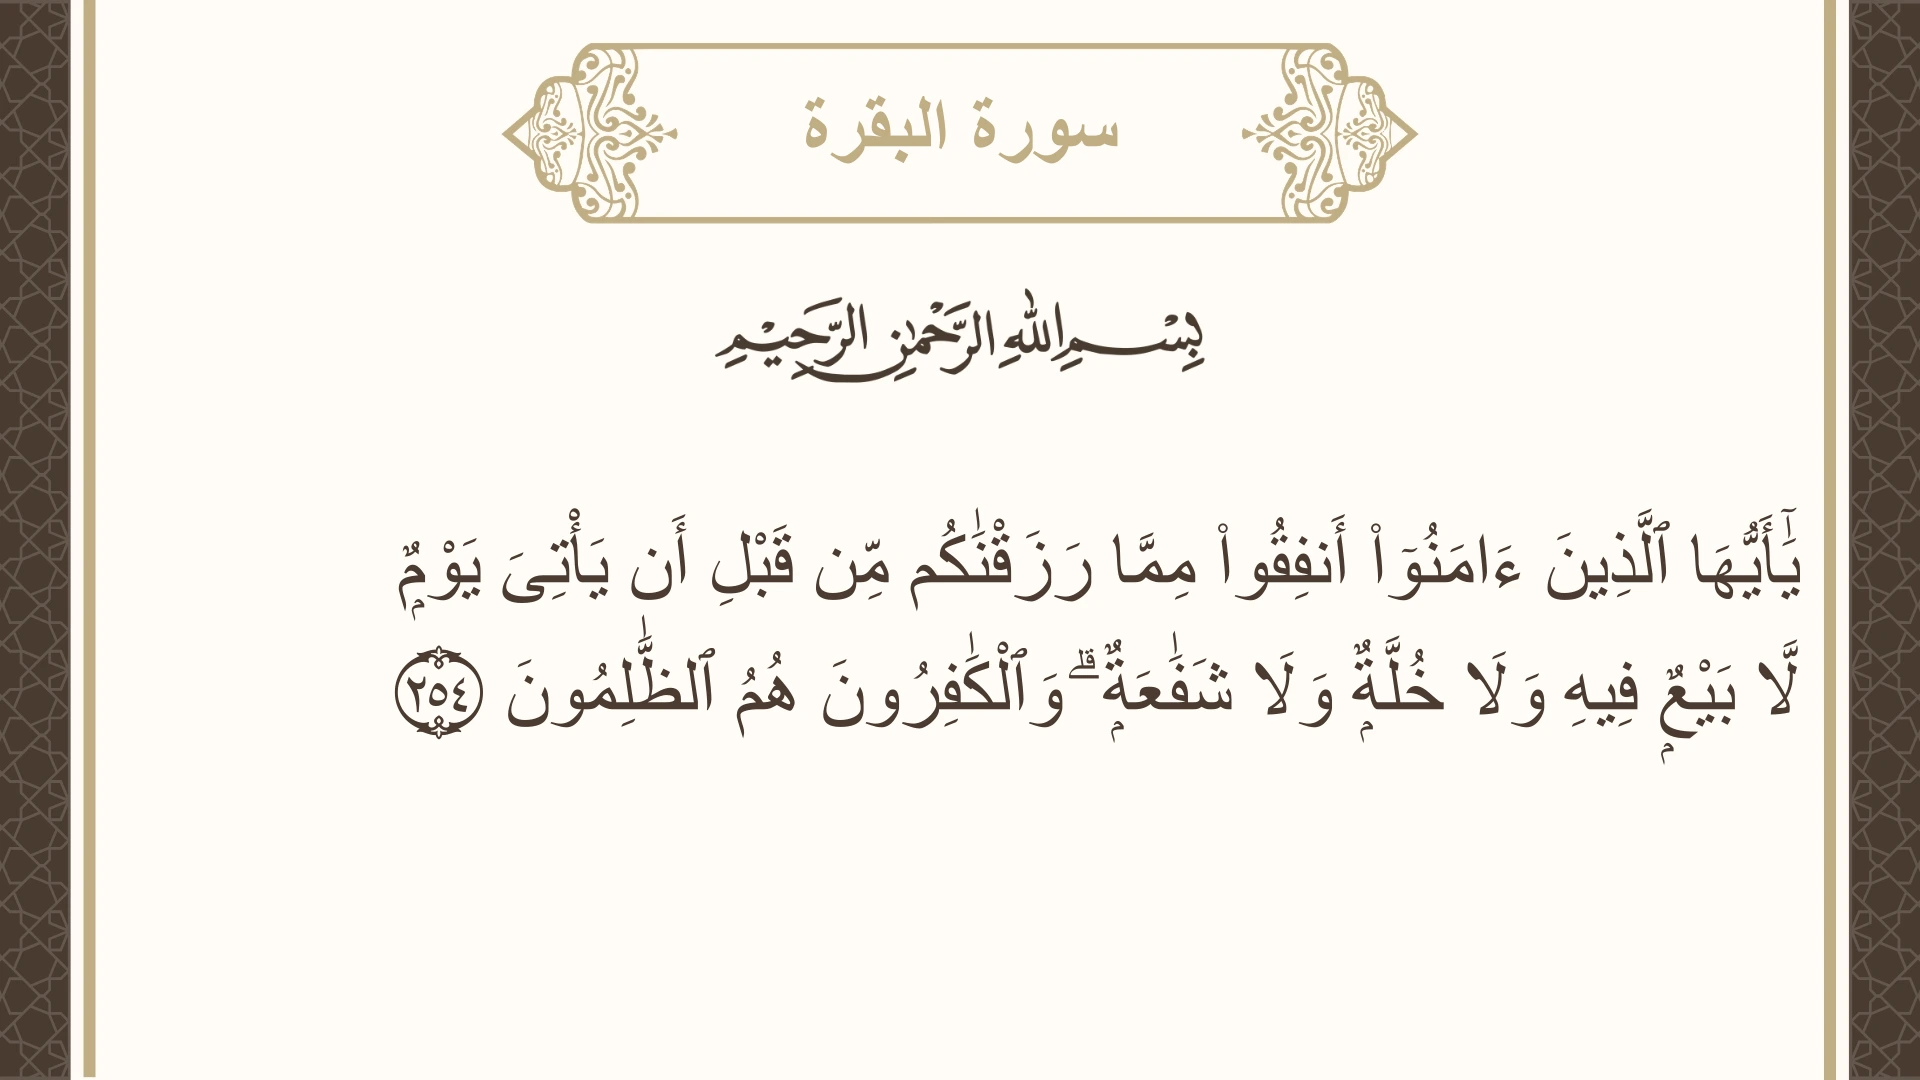 سورة البقرة
بِسْمِ اللهِ الرَّحْمٰنِ الرَّحِيْمِ
يَٰٓأَيُّهَا ٱلَّذِينَ ءَامَنُوٓا۟ أَنفِقُوا۟ مِمَّا رَزَقْنَٰكُم مِّن قَبْلِ أَن يَأْتِىَ يَوْمٌۭ
لَّا بَيْعٌۭ فِيهِ وَلَا خُلَّةٌۭ وَلَا شَفَٰعَةٌۭ ۗ وَٱلْكَٰفِرُونَ هُمُ ٱلظَّٰلِمُونَ ٢٥٤